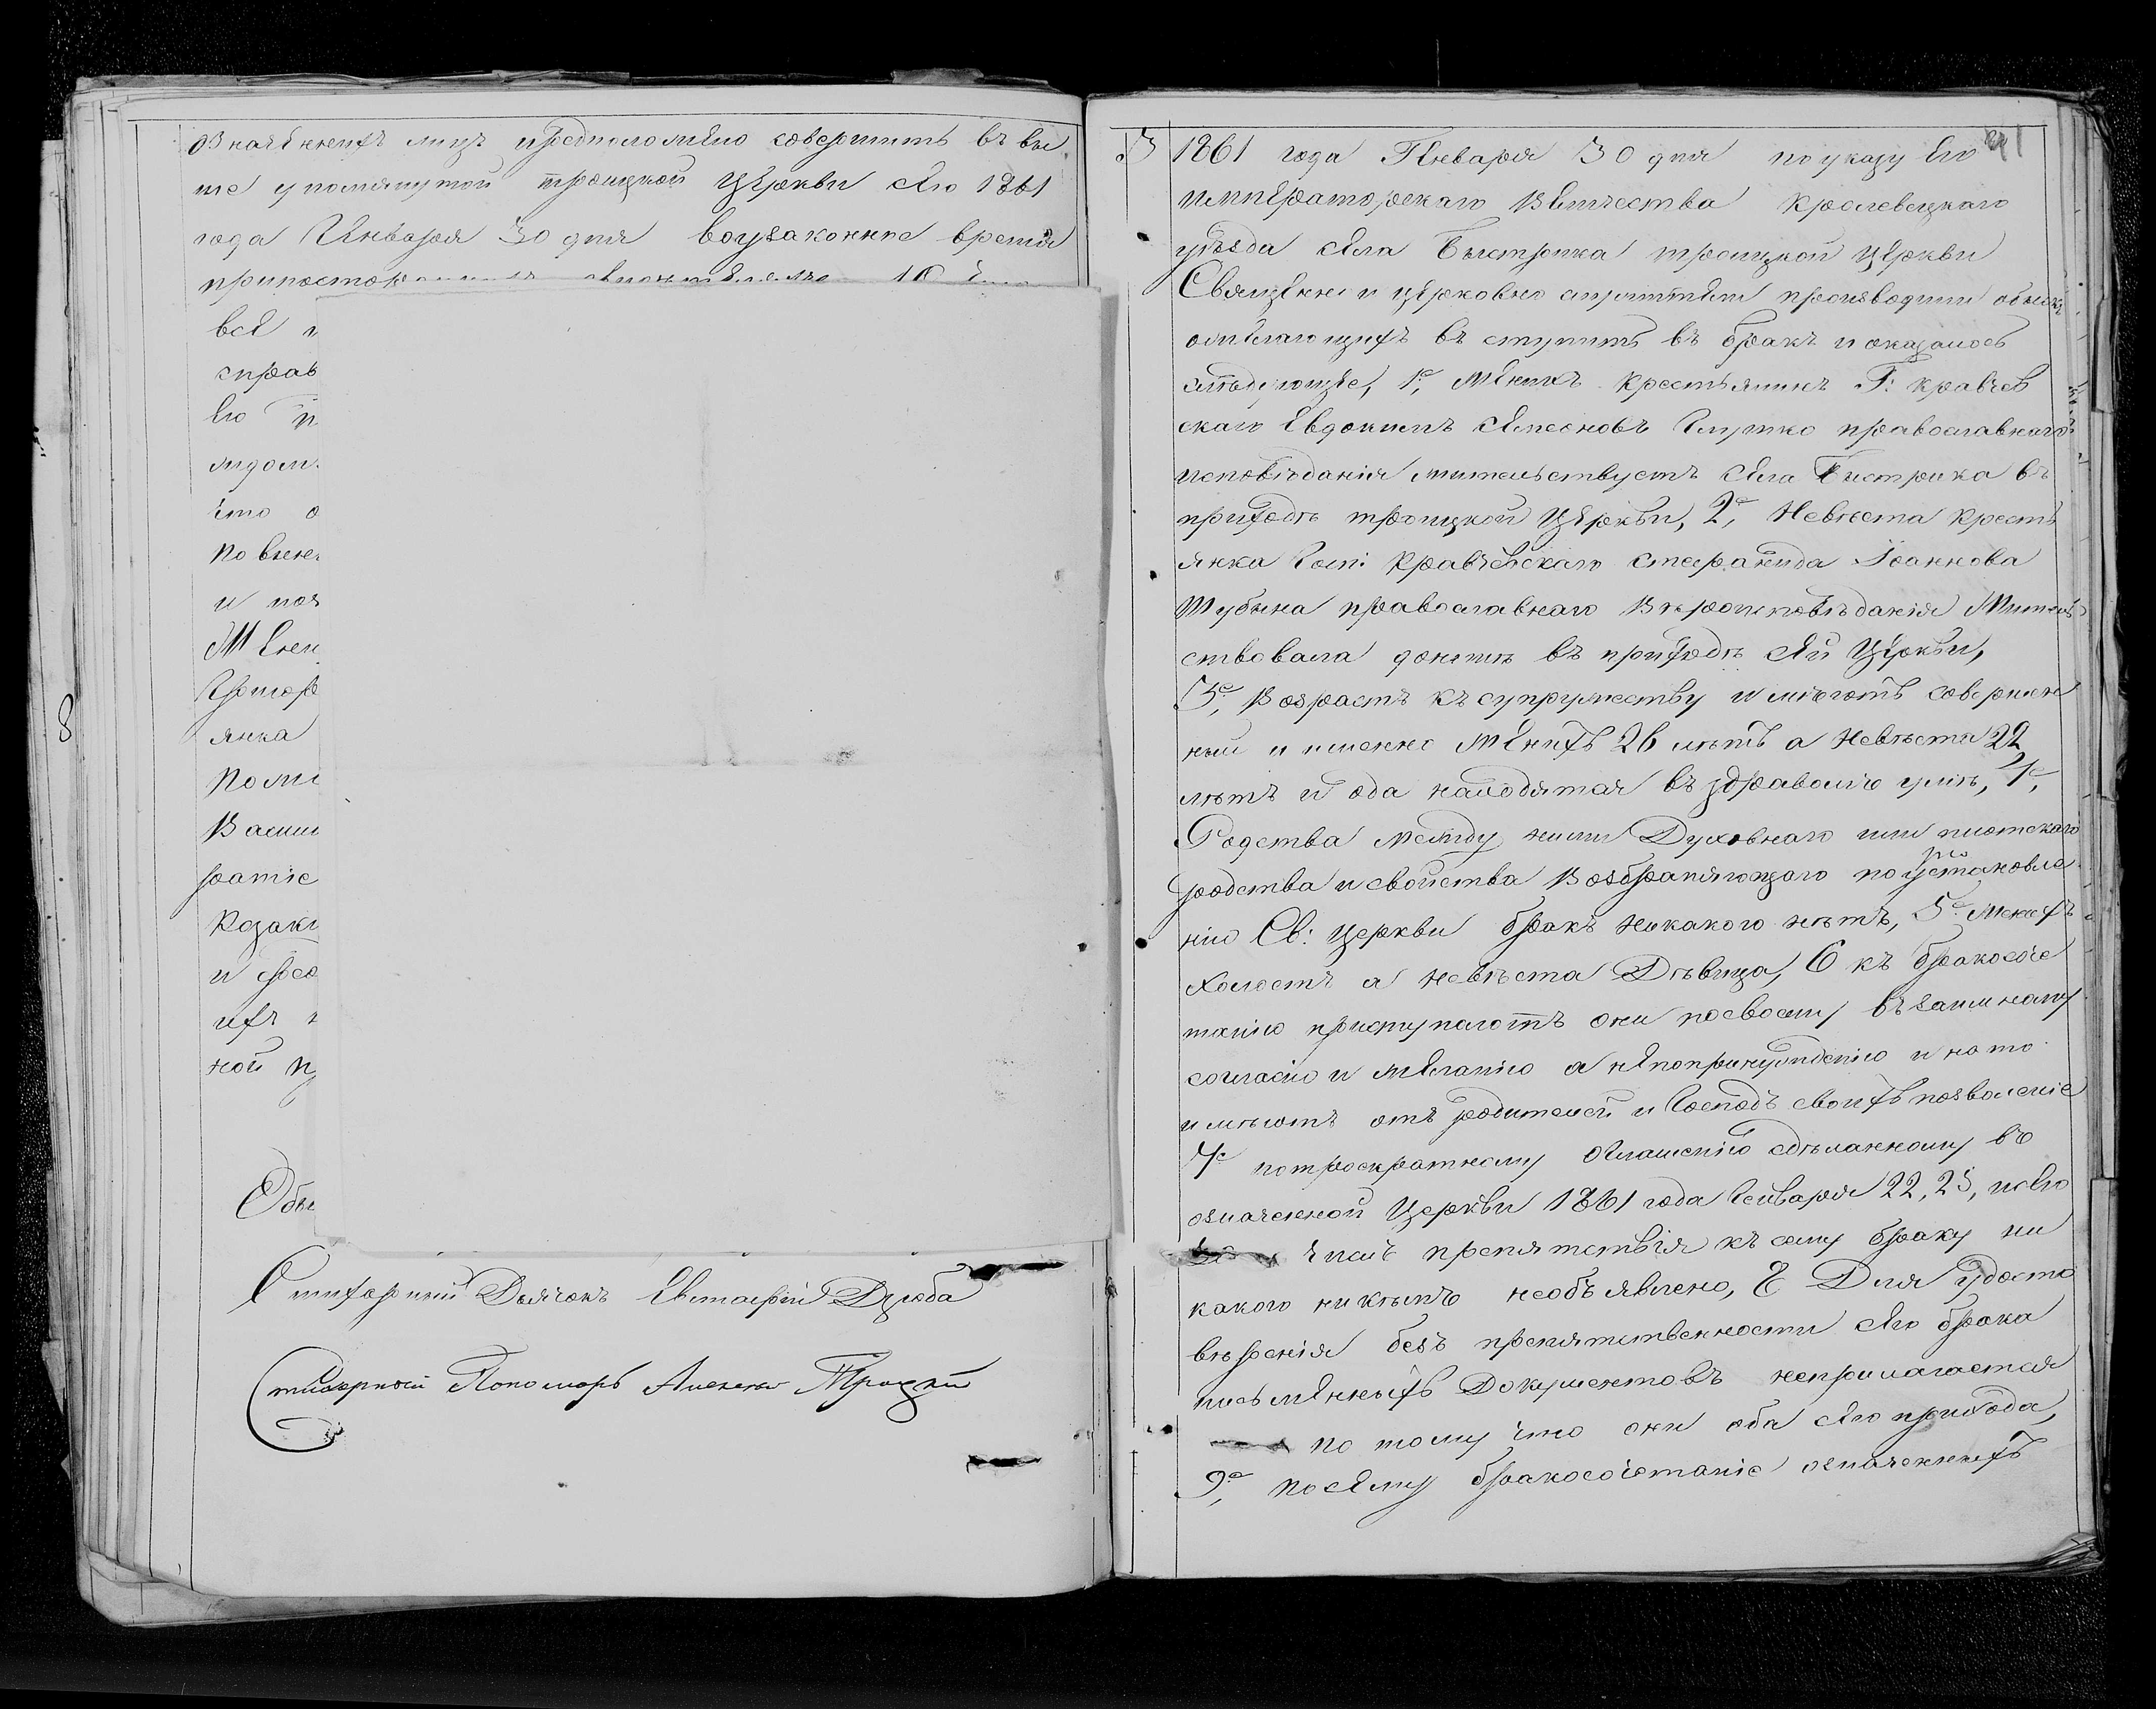 значеннихъ лицъ предположено совершить въ вы
ше упомянутой троицкой Церкви сего 1861
года Января 30 дня воузаконное время
припосто
всѣ
справ
Его
что о
по
и поз
Жен
янка
Поми
Васил
ратіе
Козак
и
ихъ
ной
Обы
Стихарний Дьячокъ Евстафій Дзюба
Стихарный Пономарь Алексей Троцкій
3 1861 года Генваря 30 дня по указу Его 41
императорскаго Величества Кролевецкаго
уѣзда села Быстрика троицкой церкви
Священно и церковно служители производили обыскъ
желающихъ въ ступить въ бракъ и оказалось
слѣдующее, 1е, Женихъ крестьянинъ Г: Кравчев
скаго Евдокимъ православнаго
исповѣданія жительствуетъ села Бистрика въ
приходѣ троицкой Церкви, 2е, Невѣста крестъ
янка Госп: Кравчевскаго Стефанида Іоаннова
Шубына православнаго Вѣроисповѣданія Житель
ствовала донинѣ въ приходѣ сей Церкви,
3е, Возрастъ къ супружеству имѣютъ совершен
ный и именно Женихъ 26 лѣтъ а Невѣста 22
лѣтъ и оба находятся въ здравомъ умѣ, 4е,
Родства между ними Духовнаго или плотскаго
родства и свойства Возбраняющаго по установле
нію Св: Церкви бракъ никакого нѣтъ, 5е Женихъ
холостъ а невѣста Дѣвица, 6 къ бракосоче
танію приступаютъ они посвоему взаимному
согласію и желанію а непопринужденію и на то
имѣютъ отъ родителей и Господъ своихъ позволеніе
7е потроекратному оглашенію сдѣланному въ
означенной Церкви 1861 года Генваря 22, 25, и сего
числе препятствія къ сему браку ни
какого никѣмъ необъявлено, 8 Для Удосто
вѣренія безъ препятственности сего брака
письменныхъ Документовъ неприлагается
по тому что они оба сего прихода,
9е, по сему бракосочетаніе означеннихъ